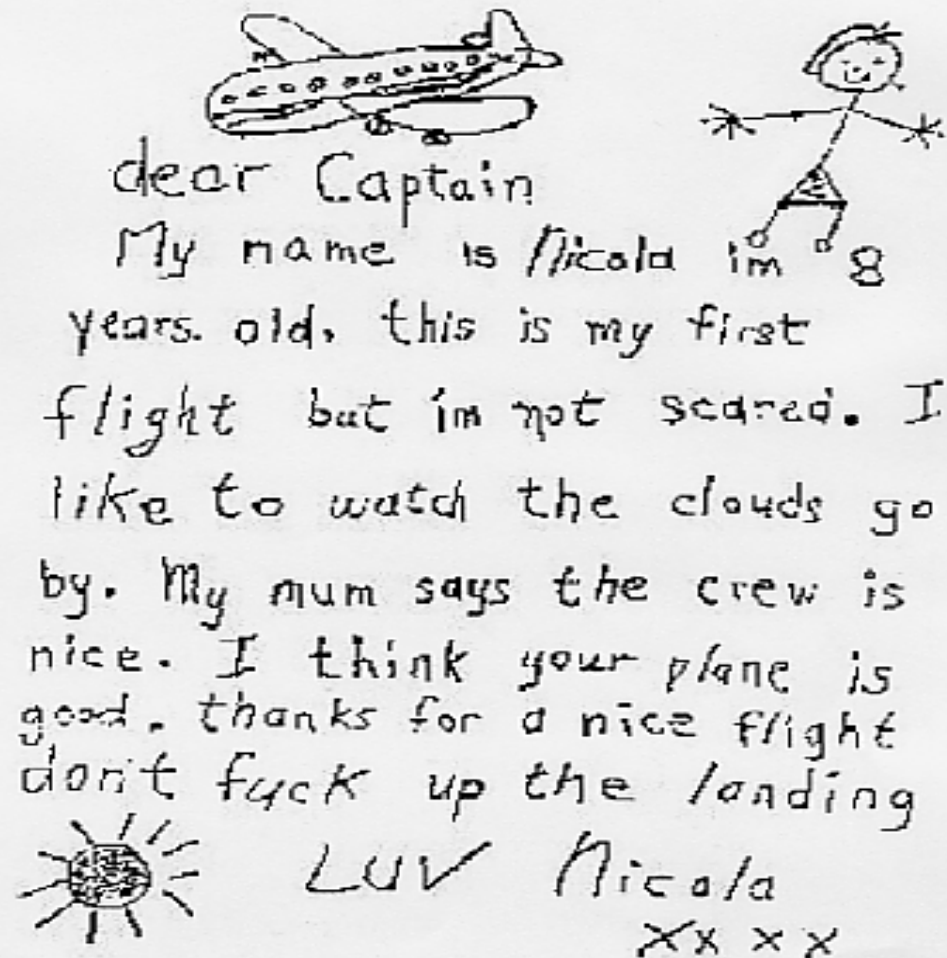 dear Captain
My name is Nicola im 8
years. old, this is my first
flight but im not scared. I
like to watch the clouds go
by. My mum says the crew is
nice. I think your plane is
good. thanks for a nice flight
don't fuck up the landing
LUV Nicola
xx x x